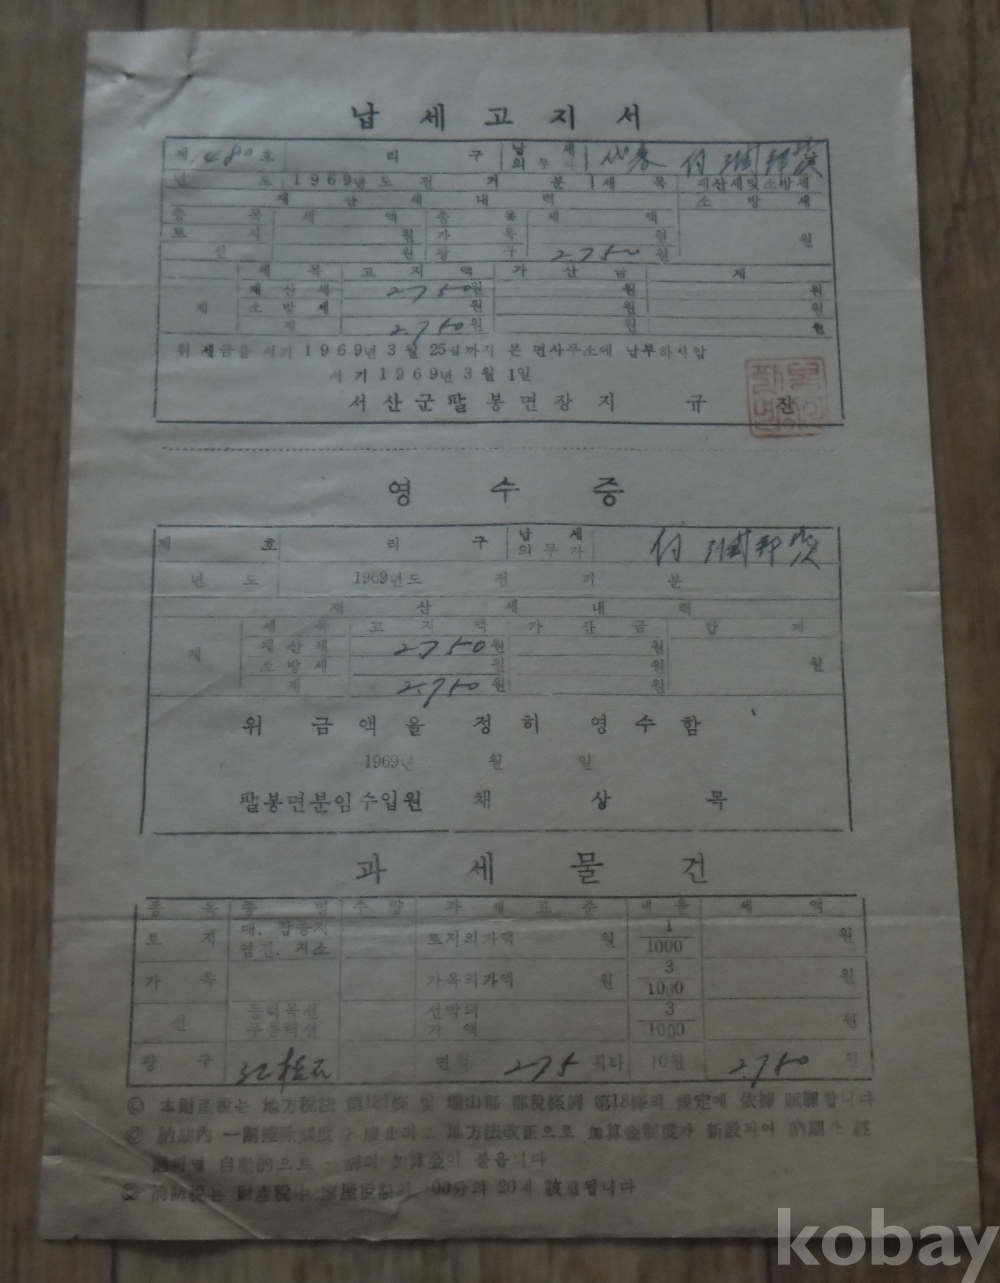 납세고지서
제 1480 호 리 구 납세의무자 代表
년도 1969년도 전기분 세목 재산세및소방세
재산세내력 소방세
종목 세액 종목 세액
토지 원 가옥 원 원
선 원 광구 2.750 원
세목 고지액 가산금 계
재산세 2.750 원 원 원
계 소방세 원 원 원
계 2.750 원 원 원
위 세금을 서기 1969년 3월 25일까지 본 면사무소에 납부하시압
서기 1969년 3월 1일
서산군팔봉면장 지규
영수증
제 호 리 구 납세의무자
년도 1969년도 전기분
재산세내력
세목 고지액 가산금 합계
재산세 2750 원 원
계 소방세 원 원 원
계 2.750 원 원
위 금액을 정히 영수함
1969년 월 일
팔봉면분임수입원 채상목
과세물건
종목 종별 수량 과세표준 세율 세액
토지 대. 잡종지 염전. 지소 토지의가액 원 1/1000 원
가옥 가옥의가액 원 3/1000 원
선 동력목선 무동력선 선박의 가액 3/1000 원
광구 275 10원 2.750 원
本財產稅는 地方稅法 第181條 및 瑞山郡 郡稅條例 第18條의 規定에 依據 賦課합니다
地方法改正으로 加算金制度가 新設되여 納期가
自動的으로 一割의 加算金이 붙읍니다
消防稅는 財產稅中 家屋稅額의 100分의 20이 該當됩니다
kobay